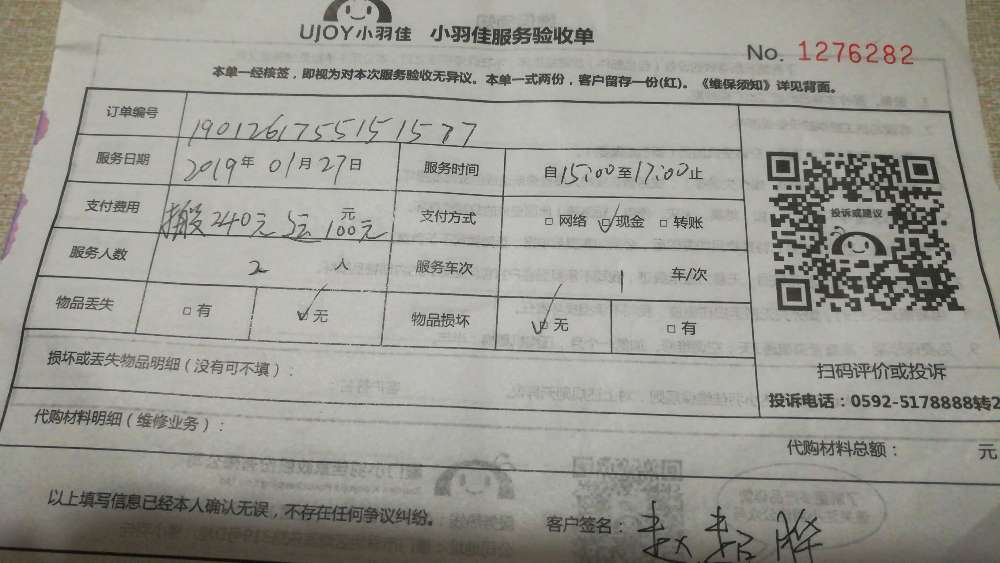 UJOY小羽佳 小羽佳服务验收单
No. 1276282
本单一经核签，即视为对本次服务验收无异议。本单一式两份，客户留存一份(红)。《维保须知》详见背面。
订单编号
服务日期 2019年01月27日 服务时间 自15:00至17:00止
支付费用 搬240元 运100元 元 支付方式 □网络 ☑现金 □转账
服务人数 2 人 服务车次 1 车/次
物品丢失 □有 ☑无 物品损坏 ☑无 □有
投诉或建议
损坏或丢失物品明细（没有可不填）：
扫码评价或投诉
投诉电话：0592-5178888转2
代购材料明细（维修业务）：
代购材料总额： 元
以上填写信息已经本人确认无误，不存在任何争议纠纷。
客户签名：